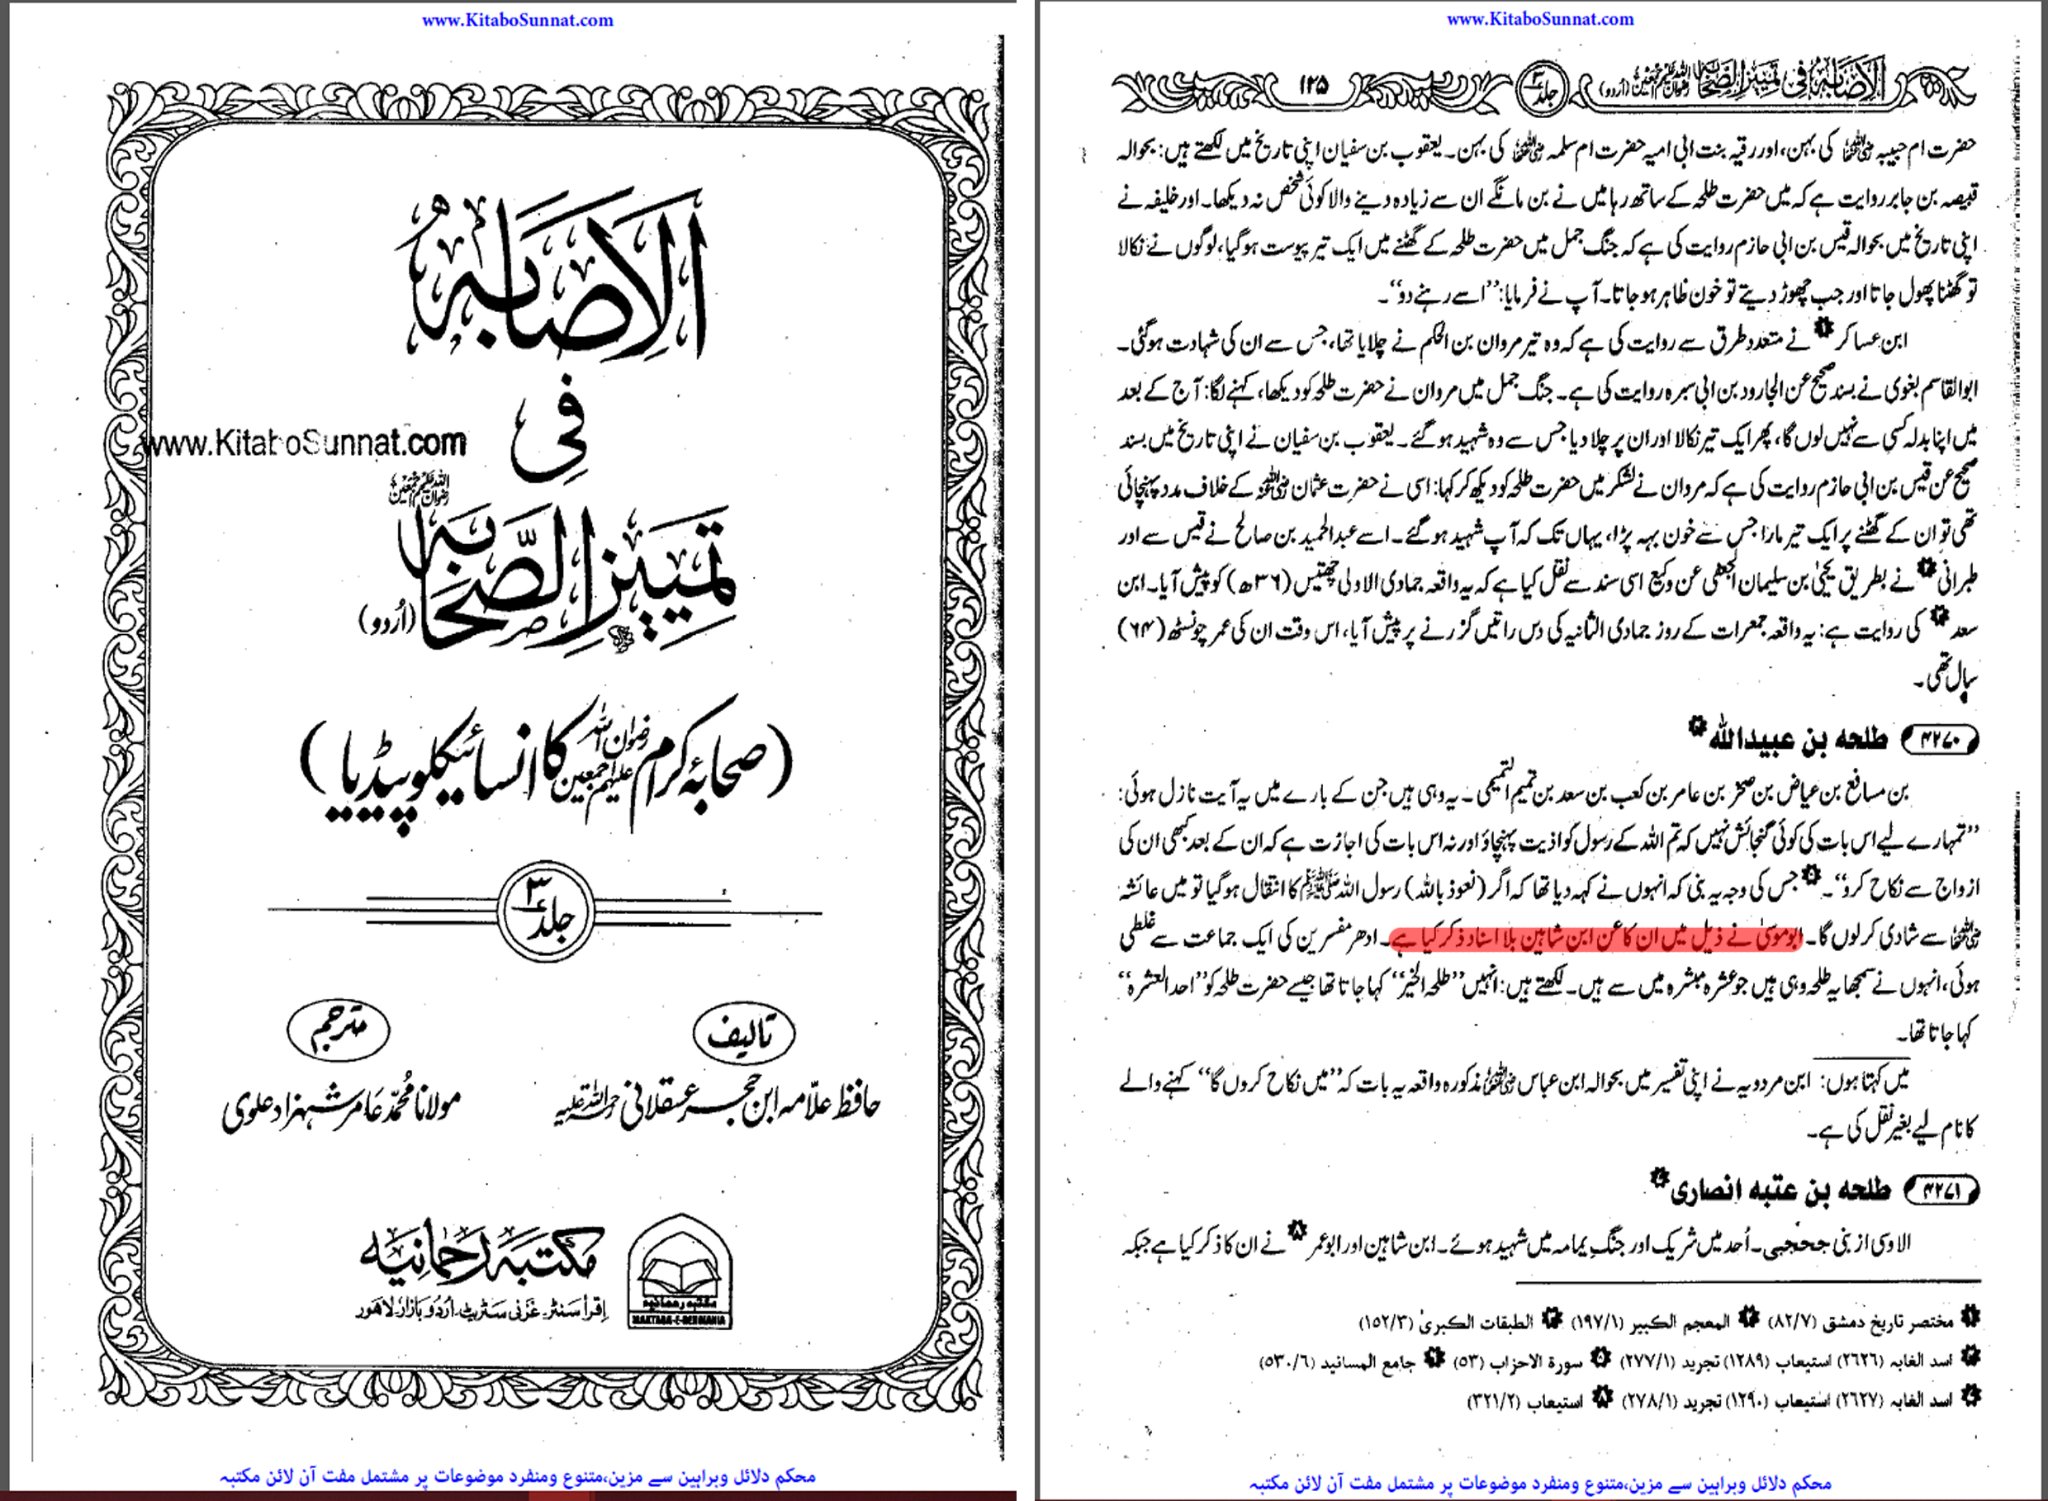 www.KitaboSunnat.com
الإصابہ
فی
www.KitaboSunnat.com
تمییز الصّحابہ
رضوان اللہ علیہم اجمعین
(اُردو)
(صحابۂ کرام رضوان اللہ علیہم اجمعین کا انسائیکلوپیڈیا)
جلد ۳
تالیف
مترجم
حافظ علّامہ ابن حجر عسقلانی رحمۃ اللہ علیہ
مولانا محمّد عامر شہزاد علوی
مکتبہ رحمانیہ
مکتبہ رحمانیہ
MAKTABA-E-REHMANIA
اقرأ سنٹر۔ غزنی سٹریٹ۔ اُردو بازار۔ لاہور
محکم دلائل وبراہین سے مزین،متنوع ومنفرد موضوعات پر مشتمل مفت آن لائن مکتبہ
www.KitaboSunnat.com
الإصابہ فی تمییز الصّحابہ رضوان اللہ علیہم اجمعین (اُردو)
جلد ۳
۱۲۵
حضرت ام حبیبہ رضی اللہ عنہا کی بہن، اور رقیہ بنت ابی امیہ حضرت ام سلمہ رضی اللہ عنہا کی بہن۔ یعقوب بن سفیان اپنی تاریخ میں لکھتے ہیں: بحوالہ
قبیصہ بن جابر روایت ہے کہ میں حضرت طلحہ کے ساتھ رہا میں نے بن مانگے ان سے زیادہ دینے والا کوئی شخص نہ دیکھا۔ اور خلیفہ نے
اپنی تاریخ میں بحوالہ قیس بن ابی حازم روایت کی ہے کہ جنگ جمل میں حضرت طلحہ کے گھٹنے میں ایک تیر پیوست ہوگیا، لوگوں نے نکالا
تو گھٹنا پھول جاتا اور جب چھوڑ دیتے تو خون ظاہر ہو جاتا۔ آپ نے فرمایا: ''اسے رہنے دو''۔
ابن عساکر ۱ نے متعدد طرق سے روایت کی ہے کہ وہ تیر مروان بن الحکم نے چلایا تھا، جس سے ان کی شہادت ہوگئی۔
ابوالقاسم بغوی نے بسند صحیح عن الجارود بن ابی سبرہ روایت کی ہے۔ جنگ جمل میں مروان نے حضرت طلحہ کو دیکھا، کہنے لگا: آج کے بعد
میں اپنا بدلہ کسی سے نہیں لوں گا، پھر ایک تیر نکالا اور ان پر چلا دیا جس سے وہ شہید ہوگئے۔ یعقوب بن سفیان نے اپنی تاریخ میں بسند
صحیح عن قیس بن ابی حازم روایت کی ہے کہ مروان نے لشکر میں حضرت طلحہ کو دیکھ کر کہا: اسی نے حضرت عثمان رضی اللہ عنہ کے خلاف مدد پہنچائی
تھی تو ان کے گھٹنے پر ایک تیر مارا جس سے خون بہہ پڑا، یہاں تک کہ آپ شہید ہوگئے۔ اسے عبدالحمید بن صالح نے قیس سے اور
طبرانی ۲ نے بطریق یحییٰ بن سلیمان الجعفی عن وکیع اسی سند سے نقل کیا ہے کہ یہ واقعہ جمادی الاولی چھتیس (۳۶ھ) کو پیش آیا۔ ابن
سعد ۳ کی روایت ہے: یہ واقعہ جمعرات کے روز جمادی الثانیہ کی دس راتیں گزرنے پر پیش آیا، اس وقت ان کی عمر چونسٹھ (۶۴)
سال تھی۔
۴۲۷۰ طلحہ بن عبیداللہ ۴
بن مسافع بن عیاض بن صخر بن عامر بن کعب بن سعد بن تمیم التیمی۔ یہ وہی ہیں جن کے بارے میں یہ آیت نازل ہوئی:
''تمہارے لیے اس بات کی کوئی گنجائش نہیں کہ تم اللہ کے رسول کو اذیت پہنچاؤ اور نہ اس بات کی اجازت ہے کہ ان کے بعد کبھی ان کی
ازواج سے نکاح کرو''۔ ۵ جس کی وجہ یہ بنی کہ انہوں نے کہہ دیا تھا کہ اگر (نعوذ باللہ) رسول اللہ ﷺ کا انتقال ہوگیا تو میں عائشہ
رضی اللہ عنہا سے شادی کر لوں گا۔ ابوموسیٰ نے ذیل میں ان کا عن ابن شاہین بلا اسناد ذکر کیا ہے۔ ادھر مفسرین کی ایک جماعت سے غلطی
ہوئی، انہوں نے سمجھا یہ طلحہ وہی ہیں جو عشرہ مبشرہ میں سے ہیں۔ لکھتے ہیں: انہیں ''طلحہ الخیر'' کہا جاتا تھا جیسے حضرت طلحہ کو ''احد العشرہ''
کہا جاتا تھا۔
میں کہتا ہوں: ابن مردویہ نے اپنی تفسیر میں بحوالہ ابن عباس رضی اللہ عنہما مذکورہ واقعہ یہ بات کہ ''میں نکاح کروں گا'' کہنے والے
کا نام لیے بغیر نقل کی ہے۔
۴۲۷۱ طلحہ بن عتبہ انصاری ۷
الاوسی از بنی جحجبی۔ اُحد میں شریک اور جنگِ یمامہ میں شہید ہوئے۔ ابن شاہین اور ابو عمر ۸ نے ان کا ذکر کیا ہے جبکہ
۱ مختصر تاریخ دمشق (۸۲/۷) ۲ المعجم الکبیر (۱۹۷/۱) ۳ الطبقات الکبریٰ (۱۵۲/۳)
۴ اسد الغابہ (۲۶۲۶) استیعاب (۱۲۸۹) تجرید (۲۷۷/۱) ۵ سورۃ الاحزاب (۵۳) ۶ جامع المسانید (۵۳۰/۶)
۷ اسد الغابہ (۲۶۲۷) استیعاب (۱۲۹۰) تجرید (۲۷۸/۱) ۸ استیعاب (۳۲۱/۲)
محکم دلائل وبراہین سے مزین،متنوع ومنفرد موضوعات پر مشتمل مفت آن لائن مکتبہ